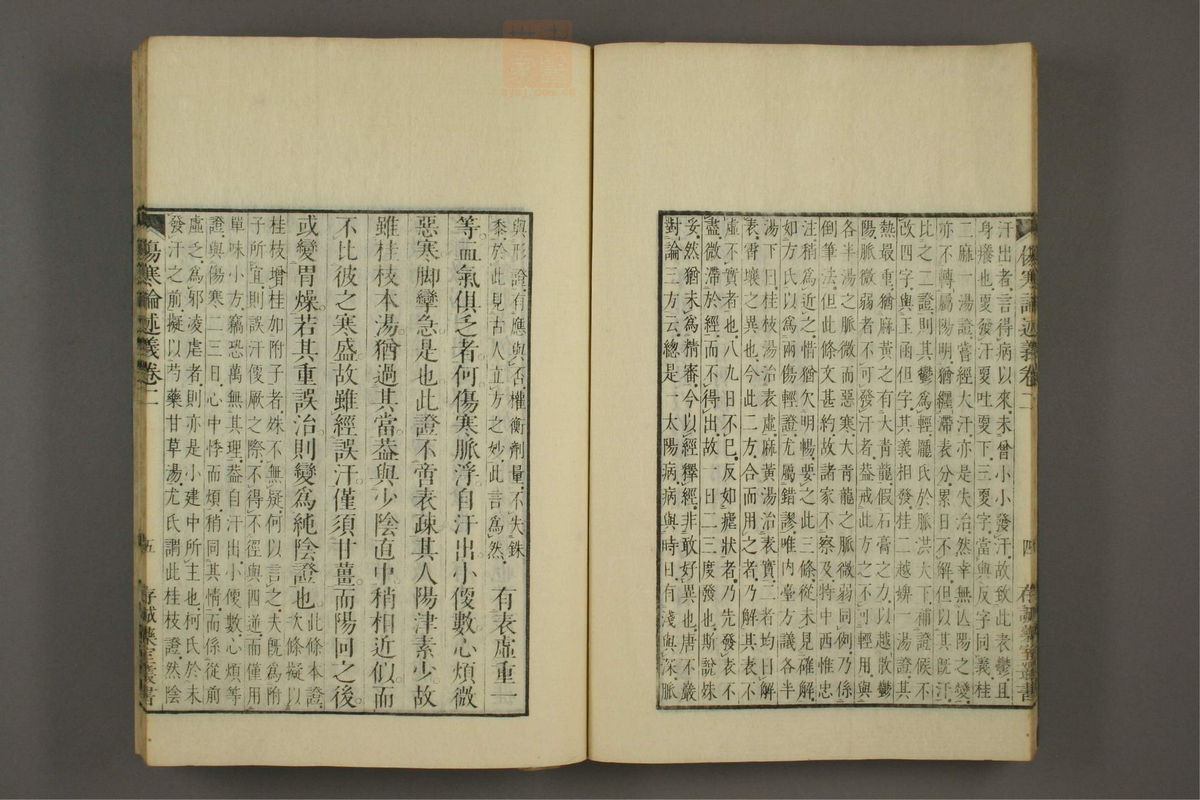 傷寒論述義卷二
四
存誠藥室叢書
汗出者言得病以來未曾小小發汗故致此表鬱且
身癢也更發汗更吐更下三更字當與反字同義桂
二麻一湯證嘗經大汗亦是失治然幸無亾陽之變
亦不轉屬陽明猶纏滯表分累日不解但以其旣汗
比之二證則其鬱爲輕龐氏於脈洪大下補證候不
改四字與玉函但字其義相發桂二越婢一湯證其
熱最重猶麻黃之有大靑龍假石膏之力以越散鬱
陽脈微弱者不可發汗者葢戒此方之不可輕用與
各半湯之脈微而惡寒大靑龍之脈微弱同例乃係
倒筆法但此條文甚約故諸家不察及特中西惟忠
注稍爲近之惜猶欠明暢要之此三條從未見確解
如方氏以爲兩傷輕證尤屬錯謬唯內臺方議各半
湯下曰桂枝湯治表虛麻黃湯治表實二者均曰解
表霄壤之異也今此二方合而用之者乃解其表不
虛不實者也八九日不已反如瘧狀者乃先發表不
盡微滯於經而不得出故一日二三度發也斯說殊
妥然猶未爲精審今以經釋經非敢好異也唐不巖
對論三方云總是一太陽病病與時日有淺與深脈
與形證有應與否權衡劑量不失銖
黍於此見古人立方之妙此言爲然
有表虛重一
等血氣俱乏者何傷寒脈浮自汗出小便數心煩微
惡寒脚攣急是也此證不啻表疎其人陽津素少故
雖桂枝本湯猶過其當葢與少陰直中稍相近似而
不比彼之寒盛故雖經誤汗僅須甘薑而陽回之後
或變胃燥若其重誤治則變爲純陰證也
此條本證
次條擬以
桂枝增桂加附子者殊不無疑何以言之夫旣爲附
子所宜則誤汗便厥之際不得不徑與四逆而僅用
單味小方竊恐萬無其理葢自汗出小便數心煩等
證與傷寒二三日心中悸而煩稍同其情而係從前
虛之爲邪凌虐者則亦是小建中所主也柯氏於未
發汗之前擬以芍藥甘草湯尤氏謂此桂枝證然陰
傷寒論述義卷二
五
存誠藥室叢書